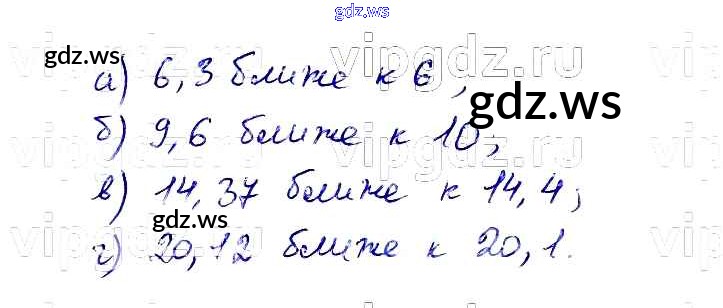 gdz.ws
gdz.ws
vipgdz.ws vipgdz.ws
а) 6,3 ближе к 6;
gdz.ws
б) 9,6 ближе к 10;
в) 14,37 ближе к 14,4;
gdz.ws
г) 20,12 ближе к 20,1.